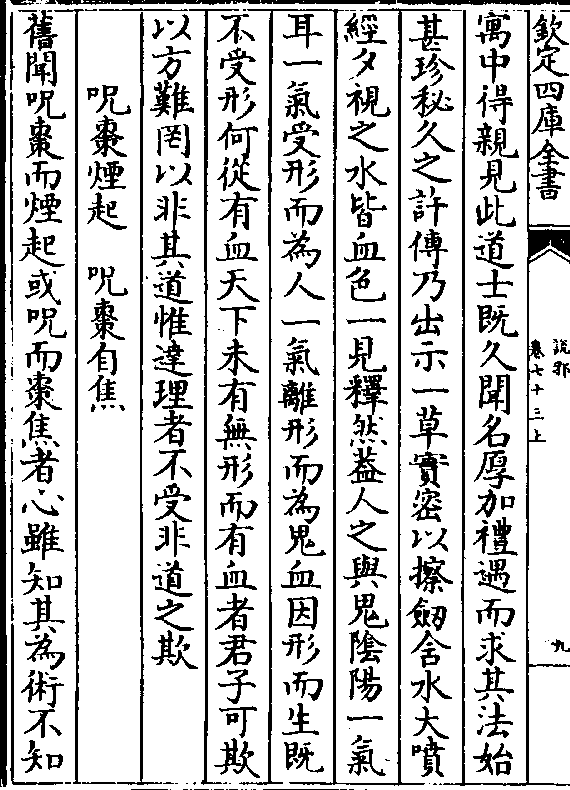 欽定四庫全書
說郛
卷七十三上
九
寓中得親見此道士既久聞名厚加禮遇而求其法始
甚珍秘久之許傳乃出示一草實密以擦劒含水大噴
經夕視之水皆血色一見釋然葢人之與鬼陰陽一氣
耳一氣受形而為人一氣離形而為鬼血因形而生既
不受形何從有血天下未有無形而有血者君子可欺
以方難罔以非其道惟達理者不受非道之欺
呪棗煙起　呪棗自焦
舊聞呪棗而煙起或呪而棗焦者心雖知其為術不知